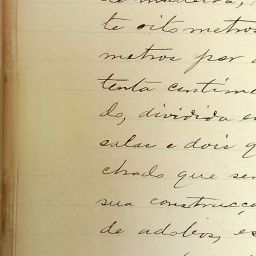 de madeira,
te oito metros
metros por
tenta centime
do, dividida em
salas e dois q
chado que ser
sua construcça
de adobos, es